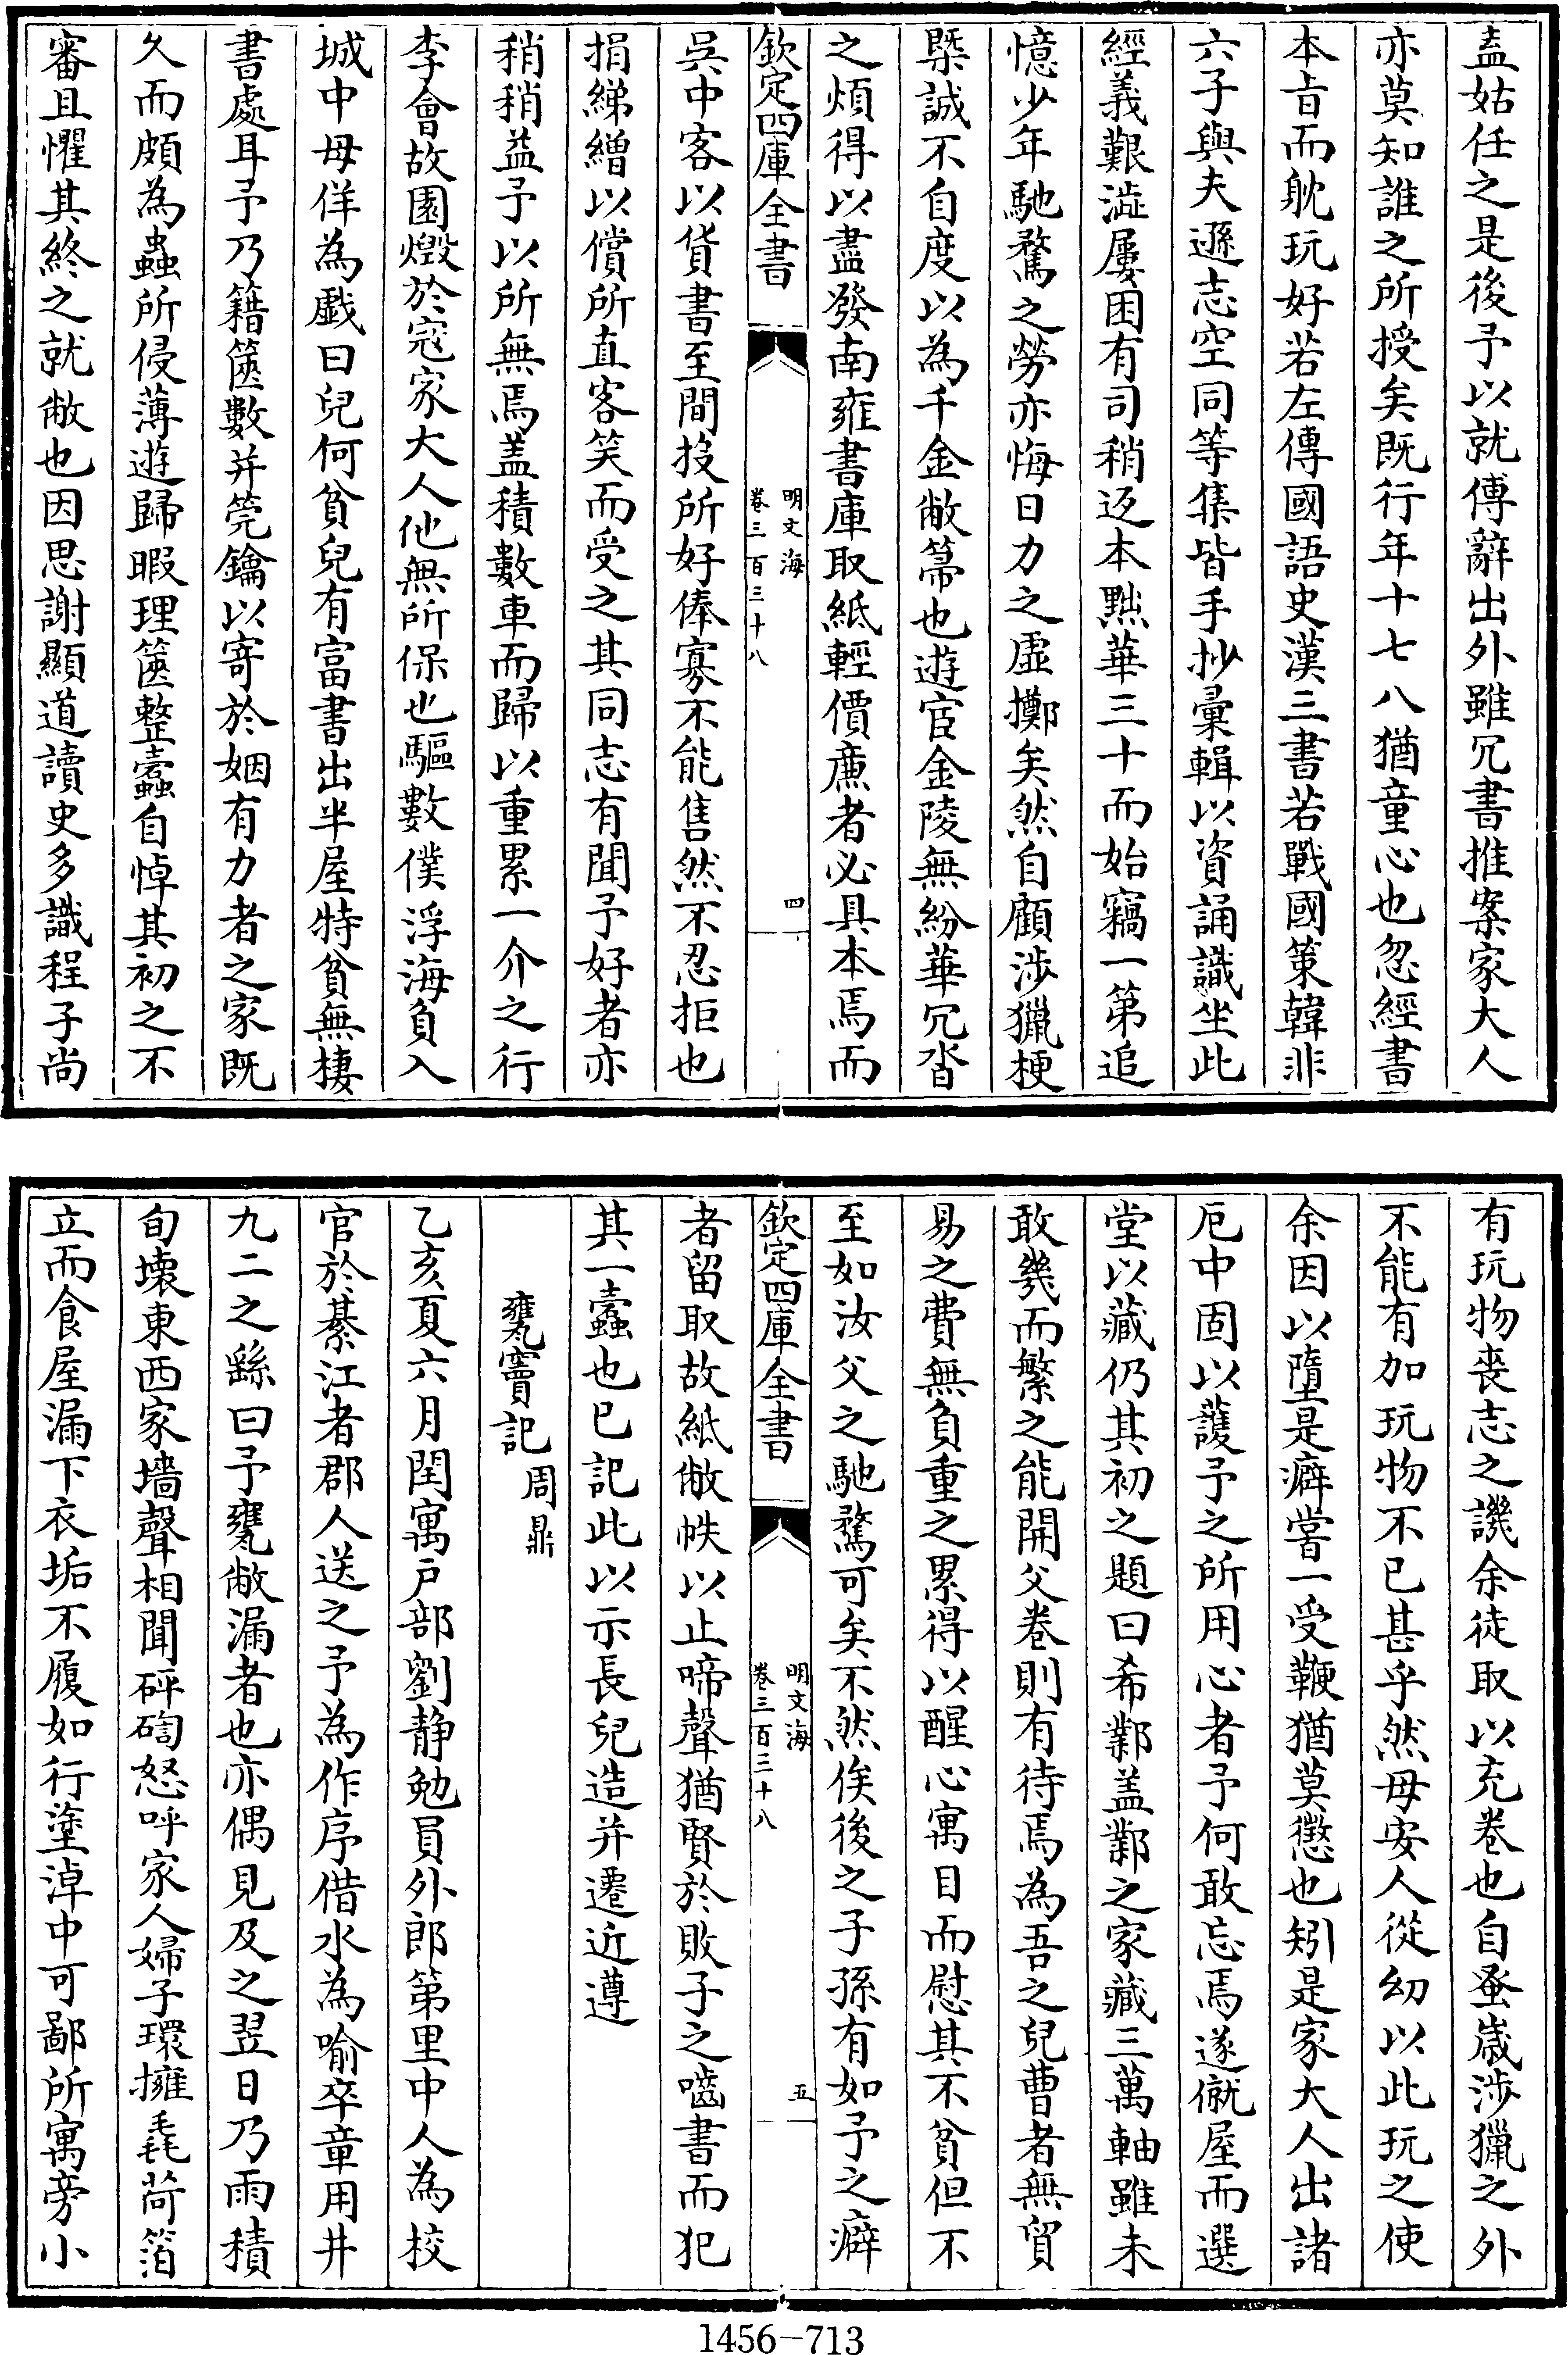 盍姑任之是後予以就傅辭出外雖冗書推案家大人
亦莫知誰之所授矣既行年十七八猶童心也忽經書
本旨而躭玩好若左傳國語史漢三書若戰國策韓非
六子與夫遜志空同等集皆手抄彙輯以資誦識坐此
經義艱澁屢困有司稍返本黜華三十而始竊一第追
憶少年馳騖之勞亦悔日力之虛擲矣然自顧涉獵梗
槩誠不自度以為千金敝帚也遊宦金陵無紛華冗沓
之煩得以盡發南雍書庫取紙輕價廉者必具本焉而
欽定四庫全書
明文海
卷三百三十八
四
吳中客以貨書至間投所好俸寡不能售然不忍拒也
捐綈繒以償所直客笑而受之其同志有聞予好者亦
稍稍益予以所無焉盖積數車而歸以重累一介之行
李會故園燬於寇家大人他無所保也驅數僕浮海負入
城中母佯為戲曰兒何貧兒有富書出半屋特貧無棲
書處耳予乃籍篋數并筦鑰以寄於姻有力者之家既
久而頗為蟲所侵薄遊歸暇理篋整蠹自悼其初之不
審且懼其終之就敝也因思謝顯道讀史多識程子尚
有玩物丧志之譏余徒取以充卷也自蚤歲涉獵之外
不能有加玩物不已甚乎然母安人從幼以此玩之使
余因以墮是癖嘗一受鞭猶莫懲也矧是家大人出諸
厄中固以護予之所用心者予何敢忘焉遂僦屋而選
堂以藏仍其初之題曰希鄴盖鄴之家藏三萬軸雖未
敢幾而繁之能開父卷則有待焉為吾之兒曹者無貿
易之費無負重之累得以醒心寓目而慰其不貧但不
至如汝父之馳騖可矣不然俟後之子孫有如予之癖
欽定四庫全書
明文海
卷三百三十八
五
者留取故紙敝帙以止啼聲猶賢於敗子之嚙書而犯
其一蠹也已記此以示長兒造并遷近遵
甕竇記周鼎
乙亥夏六月閏寓戶部劉静勉員外郎第里中人為校
官於綦江者郡人送之予為作序借水為喻卒章用井
九二之繇曰予甕敝漏者也亦偶見及之翌日乃雨積
旬壊東西家墻聲相聞砰訇怒呼家人婦子環擁毳荷箔
立而食屋漏下衣垢不履如行塗淖中可鄙所寓旁小
1456-713